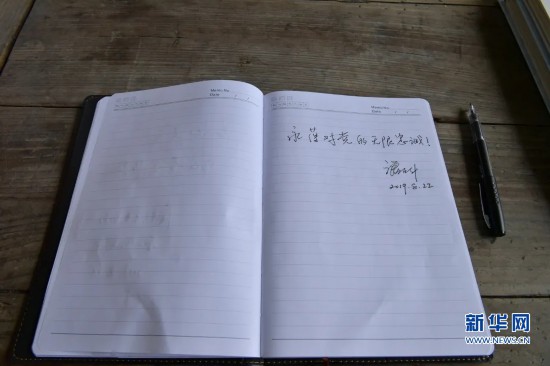 Memo No.
Date
Memo No.
Date
永葆对党的无限忠诚！
2019.5.22
新华网
WWW.NEWS.CN